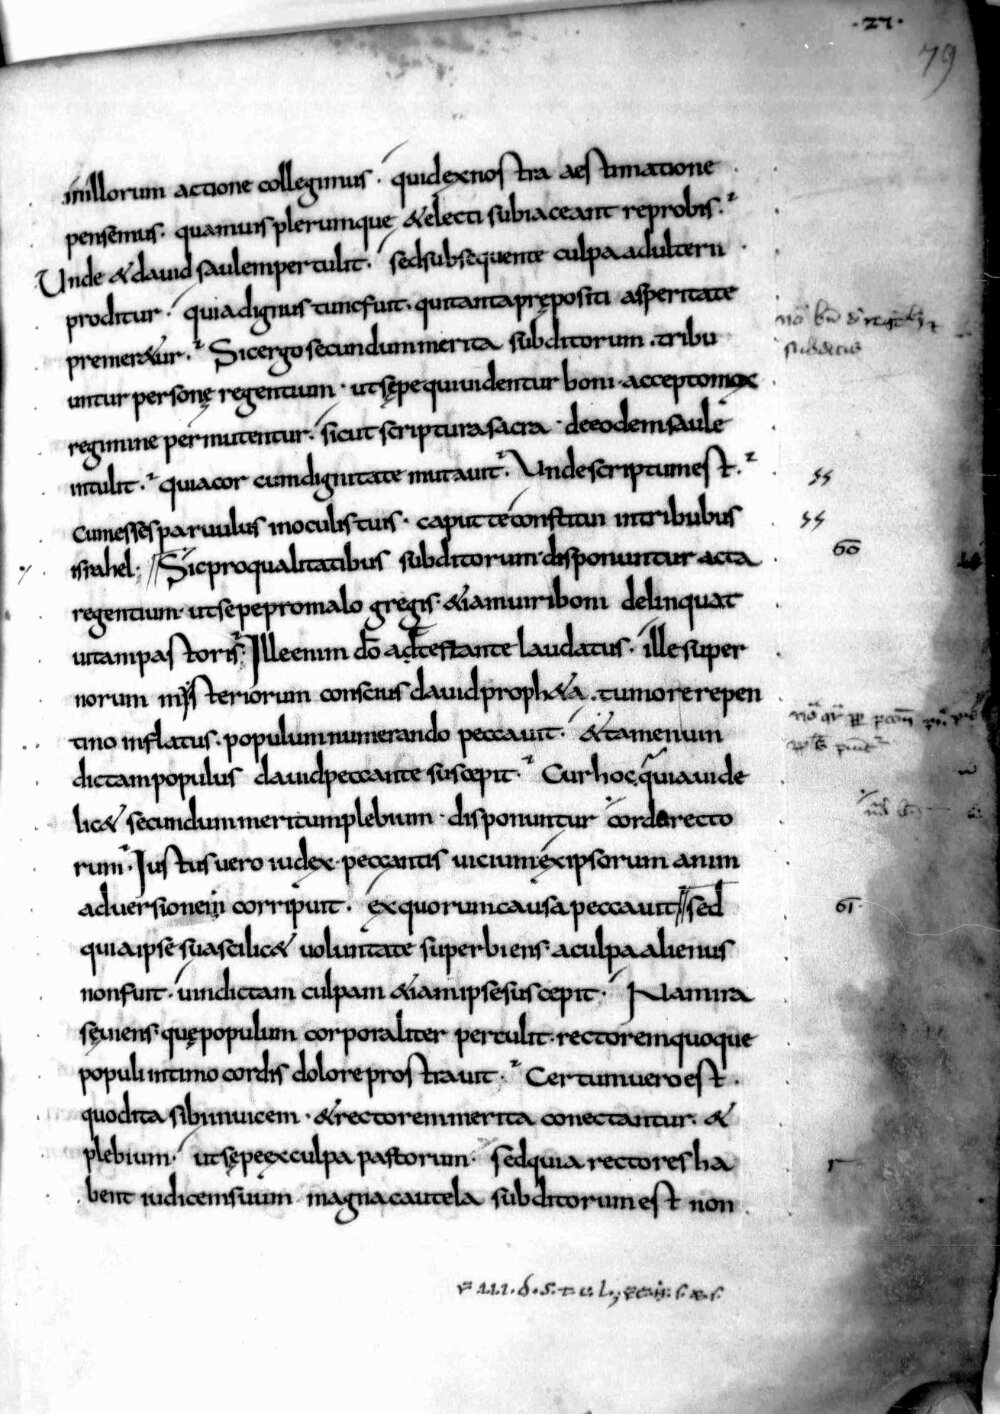 ·27·
79
inillorum actione collegimus · quidexnostra aestimatione
pensemus · quamuis plerumque &electi subiaceant reprobis ·
Unde & dauid saulempertulit · sedsubsequente culpa adulterii
proditur · quia dignus tuncfuit · qui tanta prępositi asperitate
premer&ur · Sicergo secundum merita subditorum · tribu
untur personę regentium · ut sępe qui uidentur boni · accepto mox
regimine permutentur · sicut scriptura sacra · deeodem saule
intulit · quia cor cum dignitate mutauit · Unde scriptum est ·
cum esses paruulus inoculis tuis · caput te constitui intribubus
israhel · Sicproqualitatibus subditorum · disponuntur acta
regentium · ut sepe promalo gregis · &iam uiri boni delinquat
uitampastoris · Ille enim dō adtestante laudatus · ille super
norum mysteriorum conscius dauid proph&a · tumore repen
tino inflatus · populum numerando peccauit · & tamen uin
dictam populus dauid peccante suscepit · Cur hoc quia uide
lic& secundum meritum plebium · disponuntur corda recto
rum · Iustus uero iudex · peccantis uicium exipsorum anim
aduersionem corripuit · exquorum causa peccauit sed
quia ipse sua scilic& uoluntate superbiens · a culpa alienus
non fuit · uindictam culpam &iam ipse suscepit · Nam ira
sęuiens · quę populum corporaliter pertulit · rectorem quoque
populi intimo cordis dolore prostrauit · Certum uero est ·
quod ita sibi inuicem · & rectorem merita conectantur · &
plebium · ut sępe exculpa pastorum · sed quia rectores ha
bent iudicem suum magna cautela subditorum est non
subditis
60
61